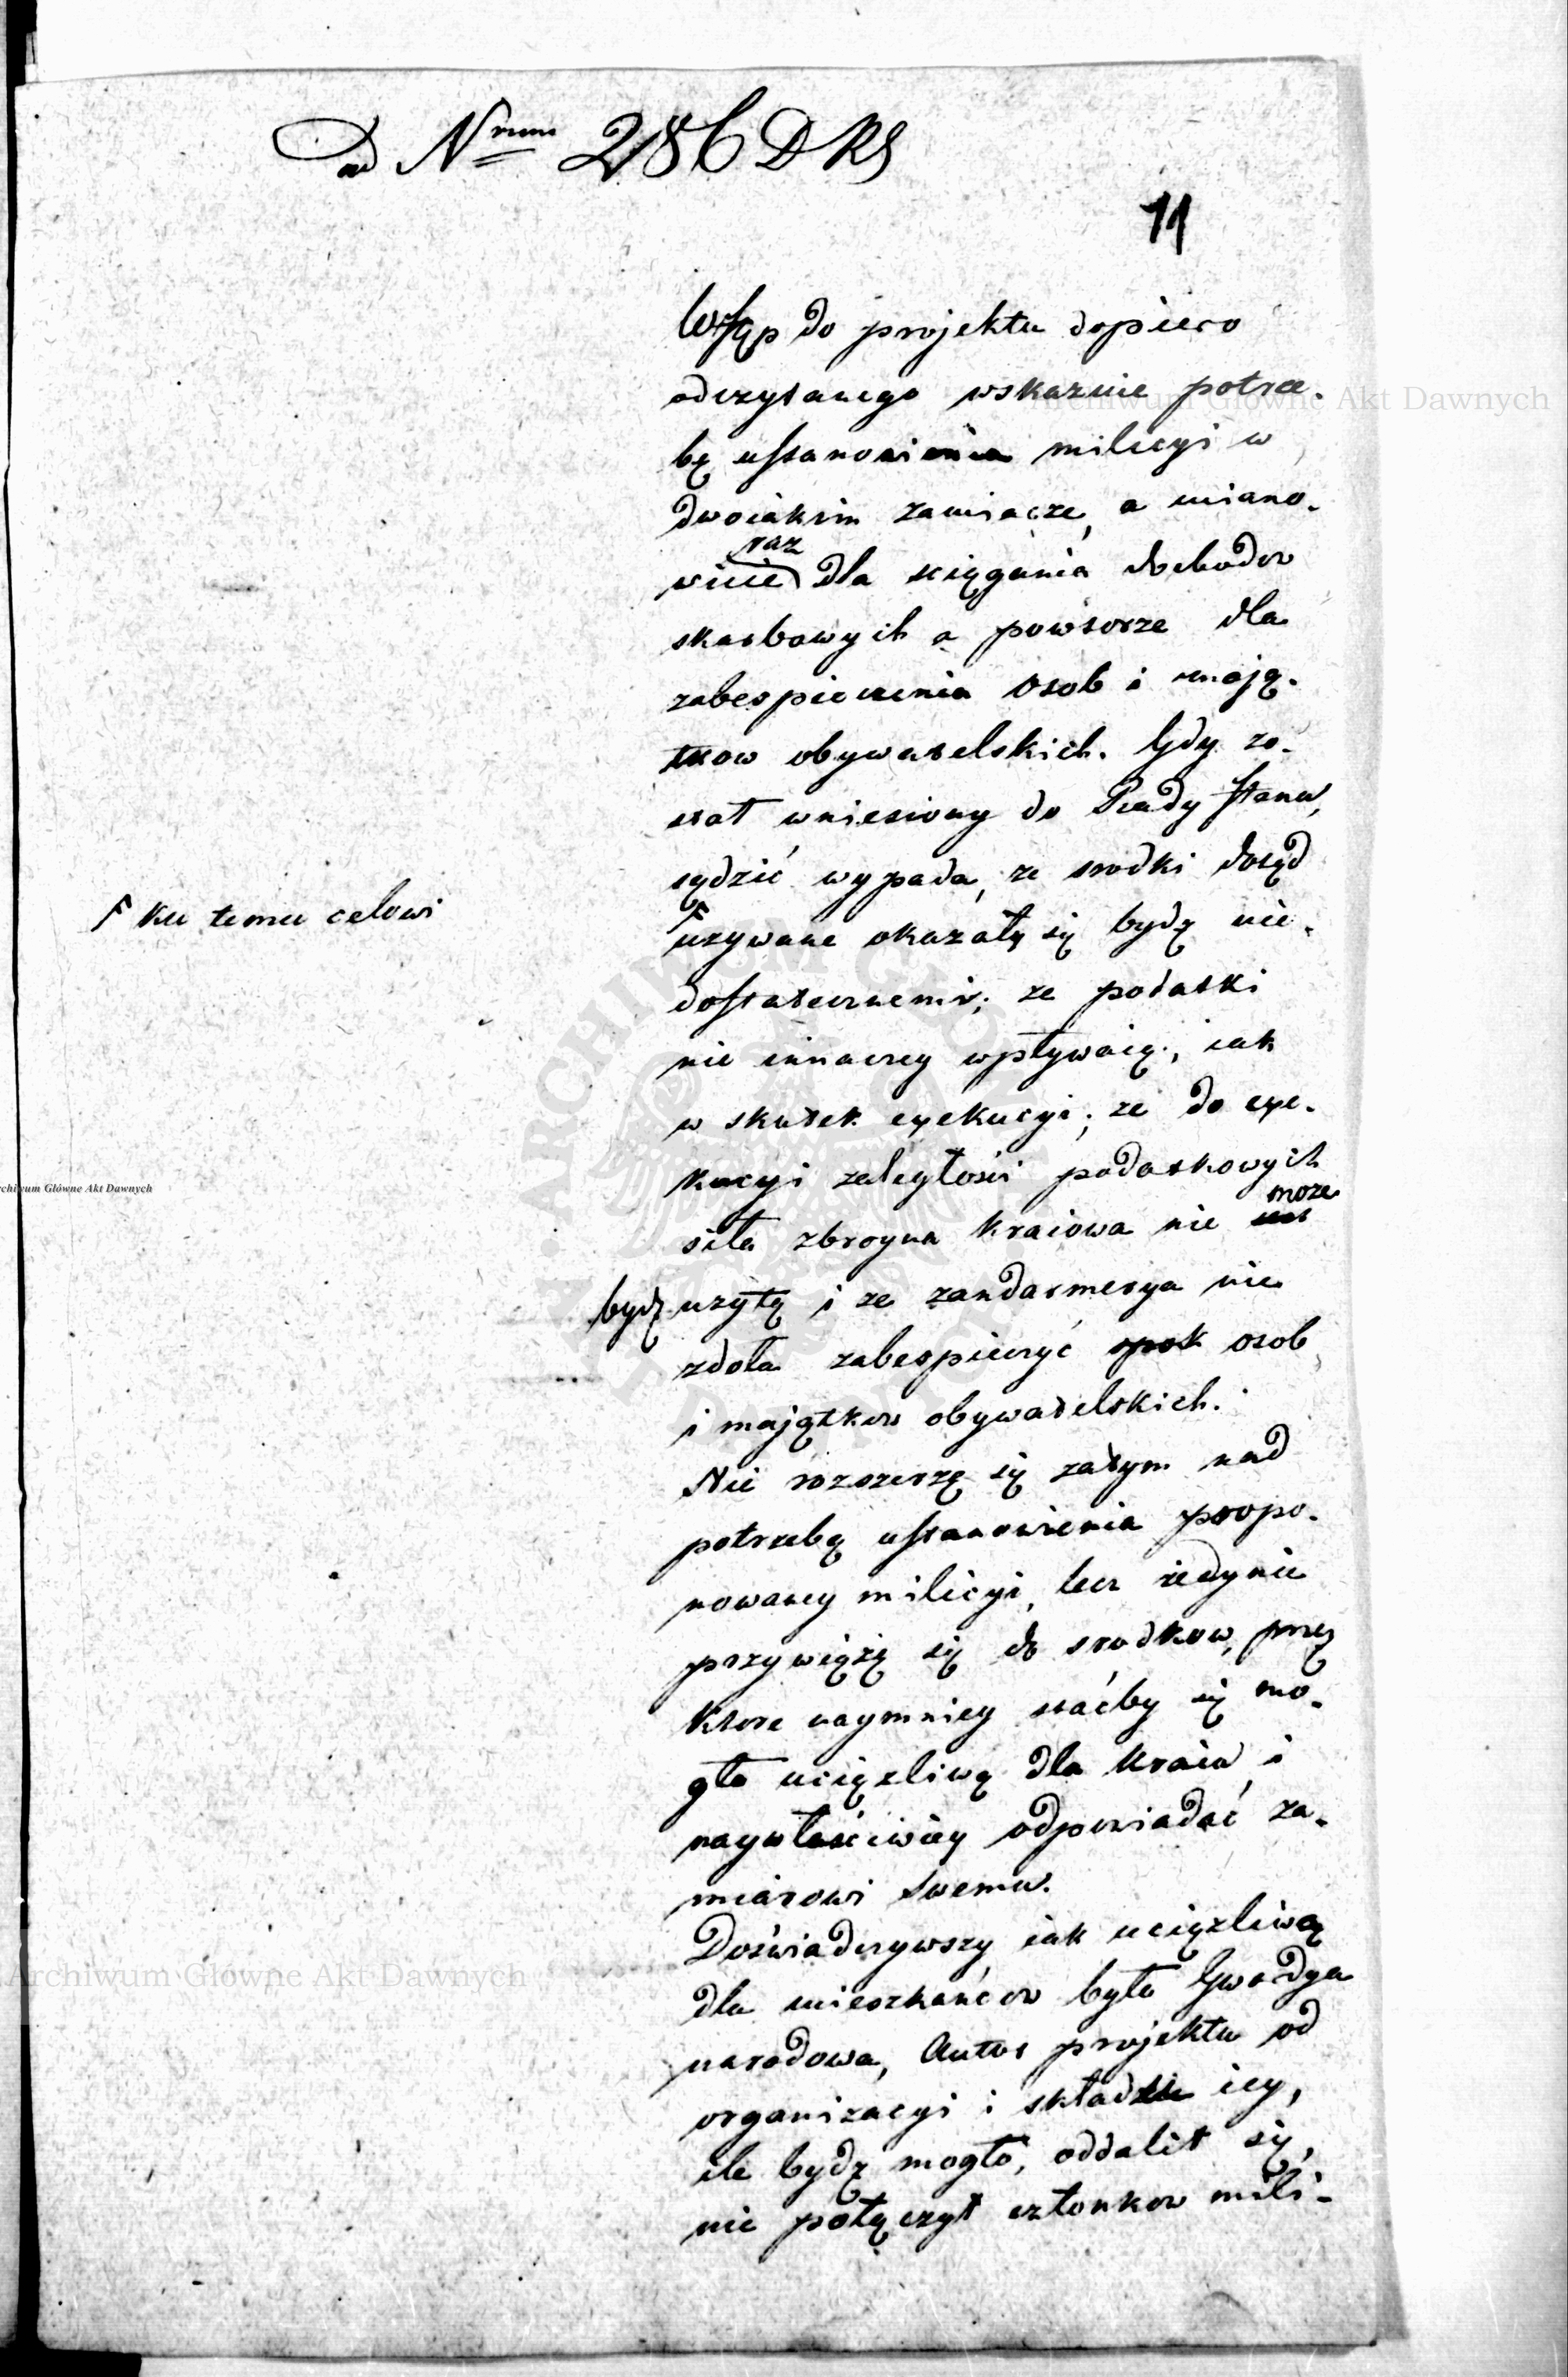 ad Nrum 286 DRS
11
Wstęp do projektu dopiero
odczytanego wskazuie potrze-
bę ustanowienia milicyi w
dwoiakim zamiarze, a miano-
raz
wicie dla sciągania dochodow
skarbowych a powtorze dla
zabespieczenia osob i mają-
tkow obywatelskich. Gdy zo-
stał wniesiony do Rady Stanu,
sądzić wypada, ze srodki dotąd
F ku temu celowi
F uzywane okazały się bydz nie-
dostatecznemi; ze podatki
nie inaczey wpływaią, iak
w skutek exekucyi; ze do exe-
kucyi zaległości podatkowych
może
siła zbroyna kraiowa nie
bydz użytą i ze zandarmerya nie
zdoła zabespieczyć spok osob
i majątkow obywatelskich.
Nie rozszerzę się zatym nad
potrzebą ustanowienia propo-
nowaney milicyi, lecz iedynie
przywiążę się do srodkow, przez
ktore naymniey staćby się mo-
gła uciązliwą dla kraiu i
naywłaściwiey odpowiadać za-
miarowi swemu.
Doświadczywszy iak uciązliwą
dla mieszkańcow była Gwardya
narodowa, Autor projektu od
organizacyi i składu iey,
ile bydz mogło, oddalił się,
nie połączył członkow mili-
Archiwum Główne Akt Dawnych
Archiwum Główne Akt Dawnych
Archiwum Główne Akt Dawnych